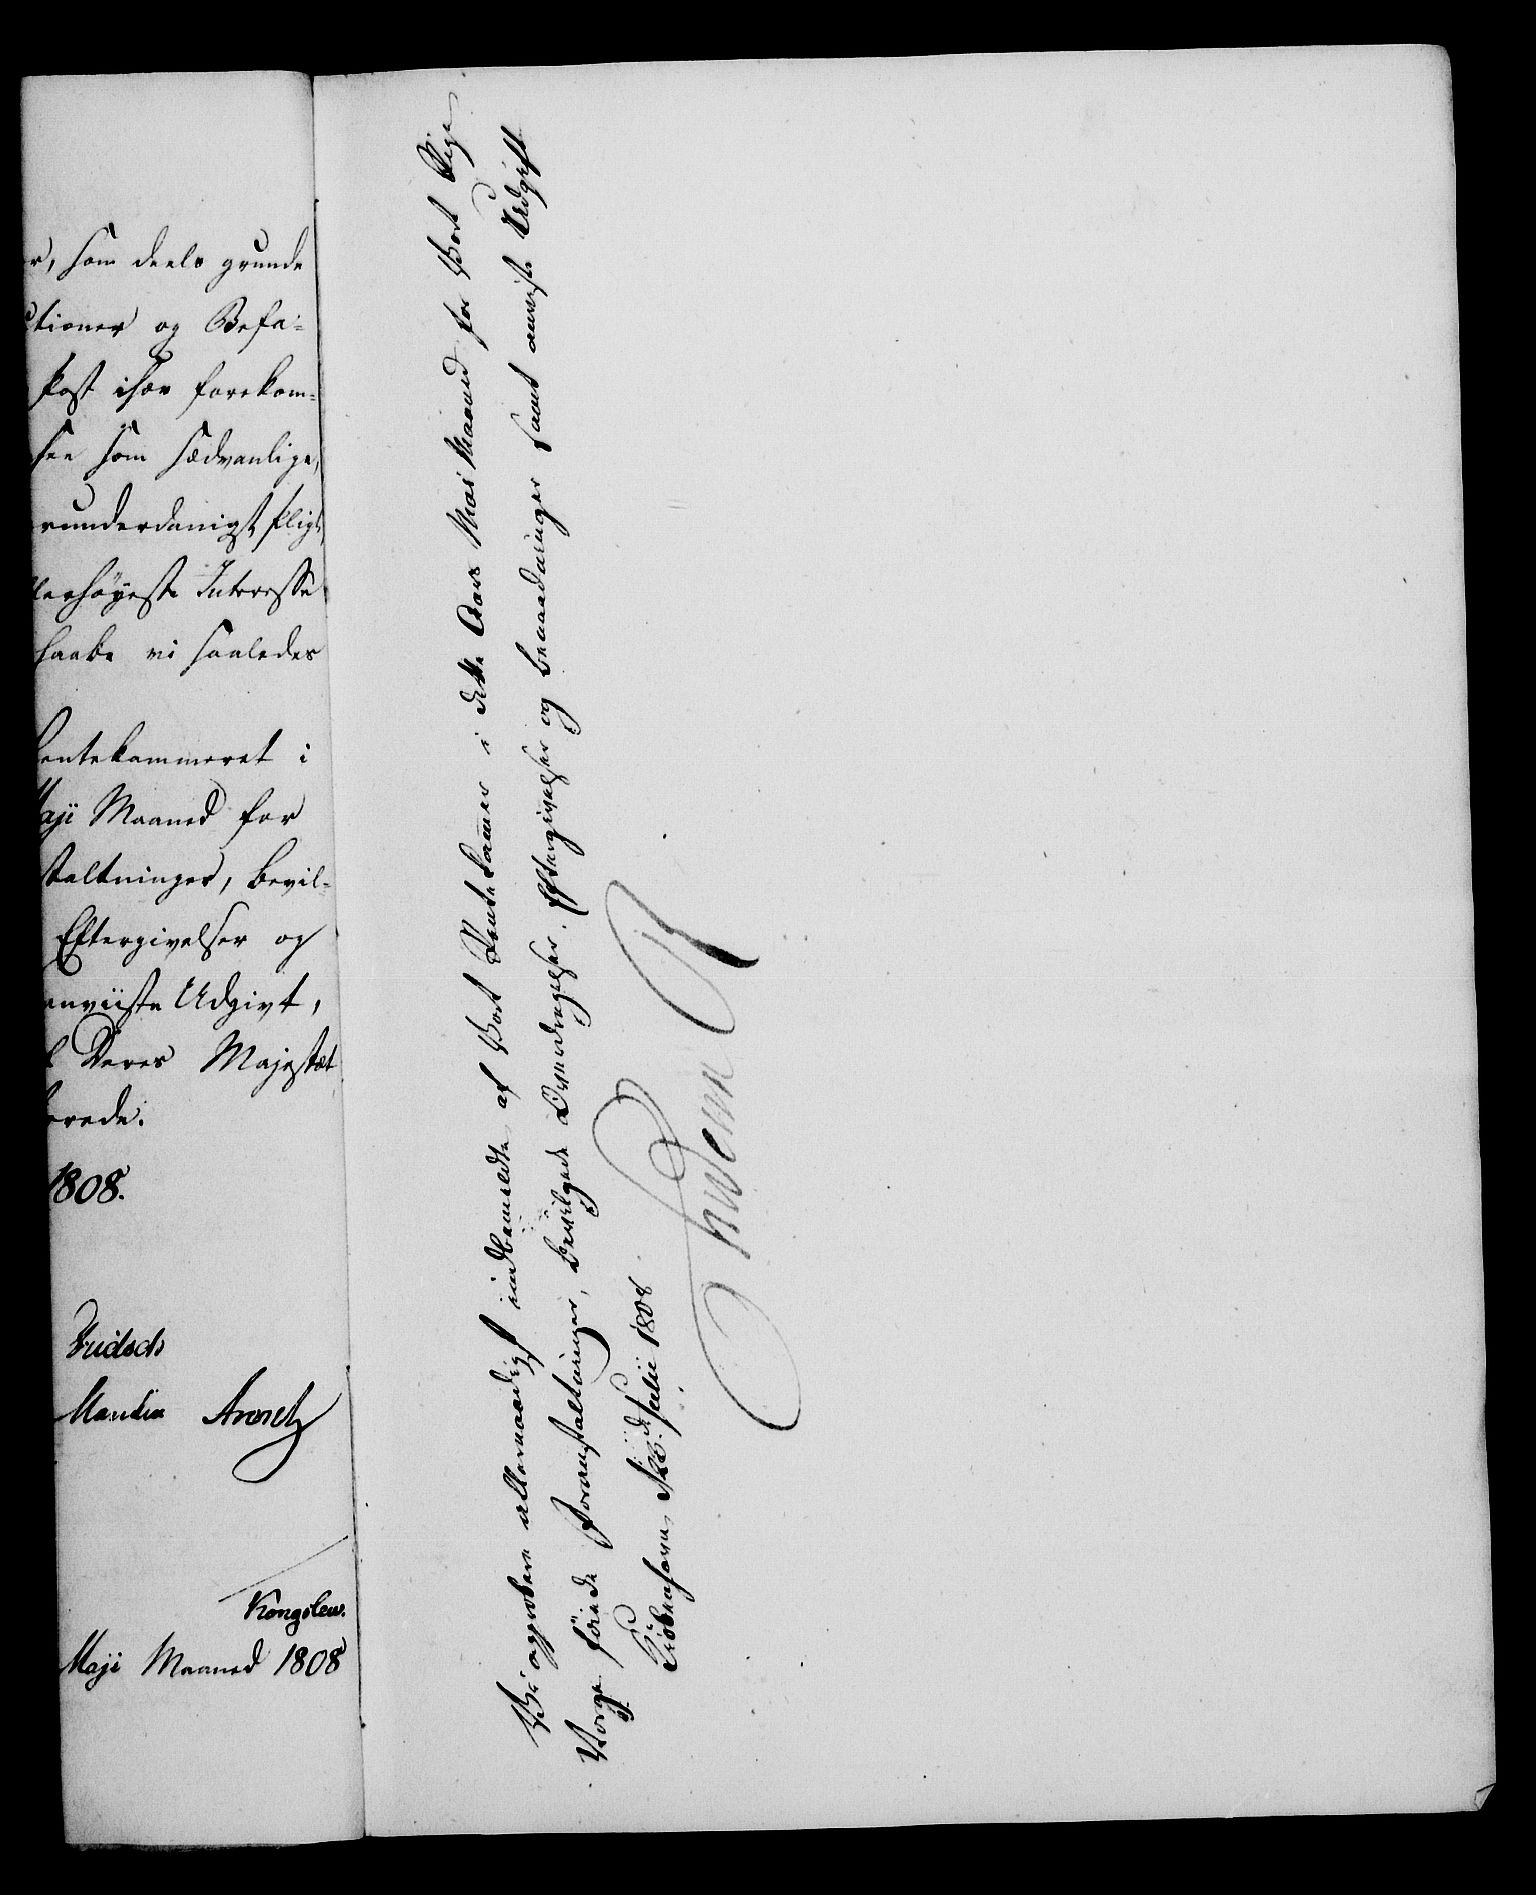 r, som deels grunde
ctioner og Befa-
Post især forekom-
see som sædvanlige,
runderdanigst pligt
llerhøyeste Interesse
haabe vi saaledes
Rentekammeret i
Maji Maaned for
staltninger, bevil-
Eftergivelser og
anviiste Udgivt,
l Deres Majestæt
erede.
1808.
Mandix Arentz
Kongslew.
Maji Maaned 1808
Vi approbere allernaadigst indbemeldte af Vort Rentekammer i dette Aars Mai Maaned for Vort Rige
Norge føiede Foranstaltninger, bevilgede Overdragelser, Eftergivelser og benaadninger samt anviste Udgift
Kiøbenhavn, d: Julii 1808
Frederik R